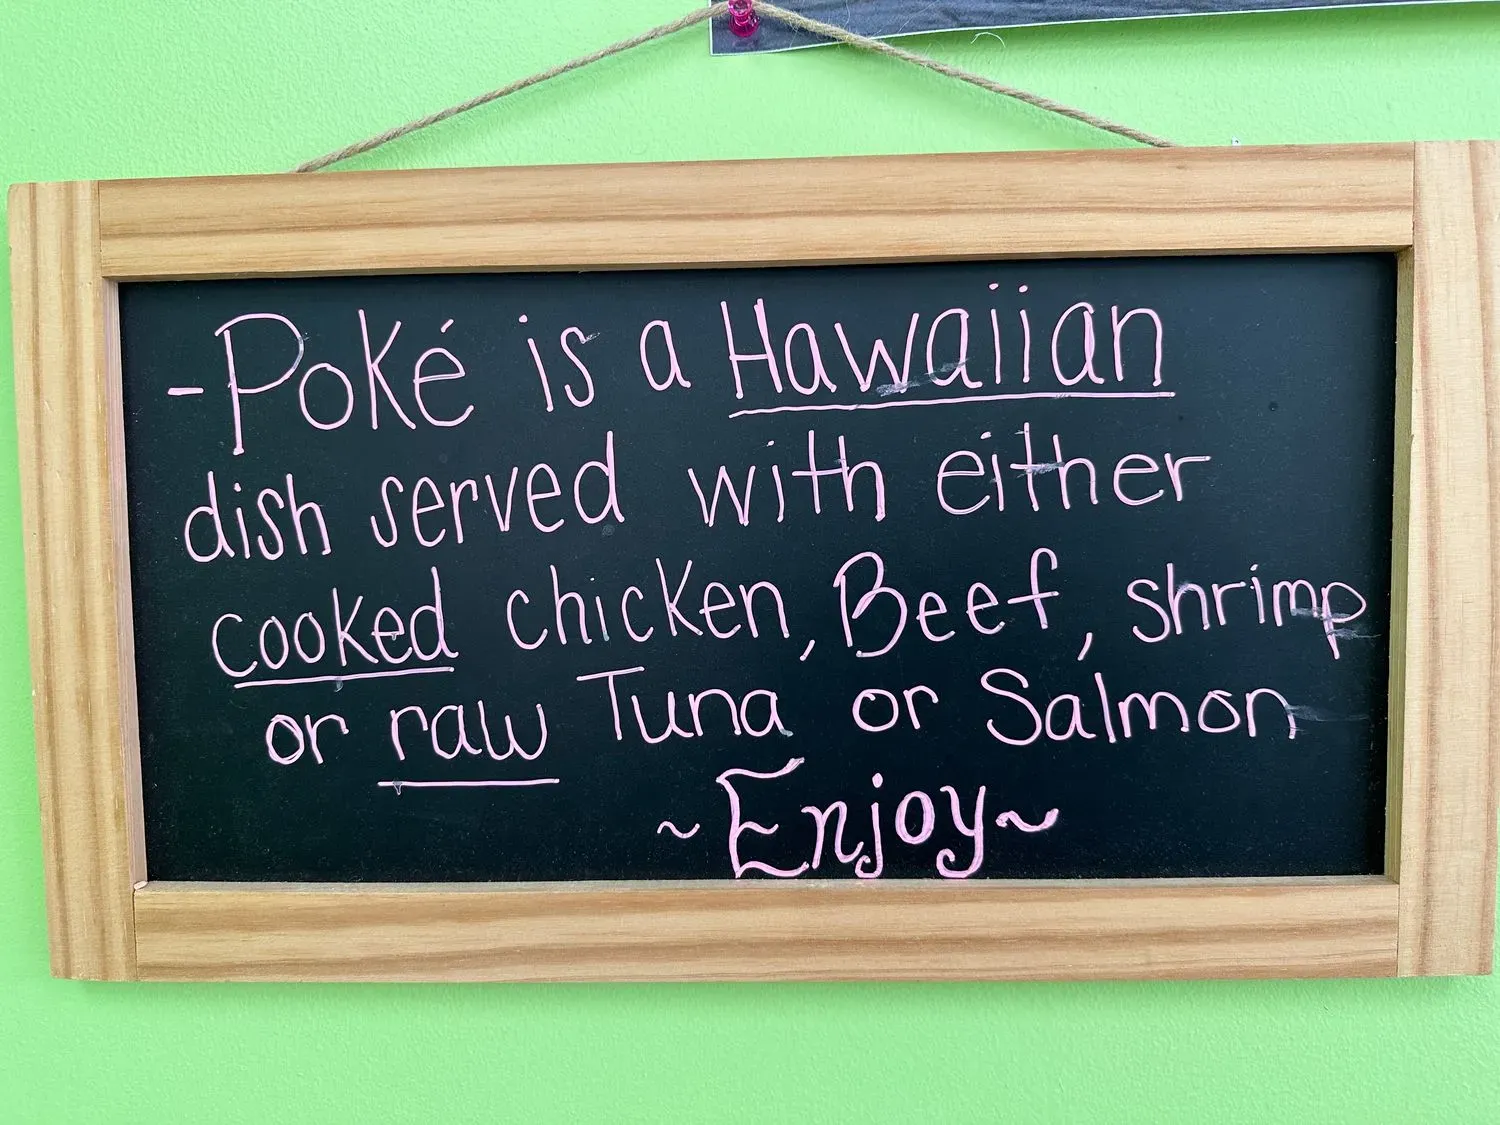 -Poké is a Hawaiian
dish served with either
cooked chicken, Beef, shrimp
or raw Tuna or Salmon
~Enjoy~